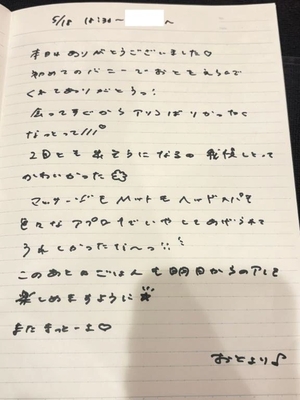 5/18 18:30〜 〜
本日はありがとうございました♡
初めてのバニーでおとをえらんで
くれてありがとうっ!
会ってすぐから
なっとって///
2回とも 出そうになるの 我慢しとって
かわいかった
マッサージもMットもヘッドスパも
色々なアプローチでいやしてあげられて
うれしかったな〜っ!!
このあとのごはんも明日からの
楽しめますように☆
またまっとーよ♡
おとより♪